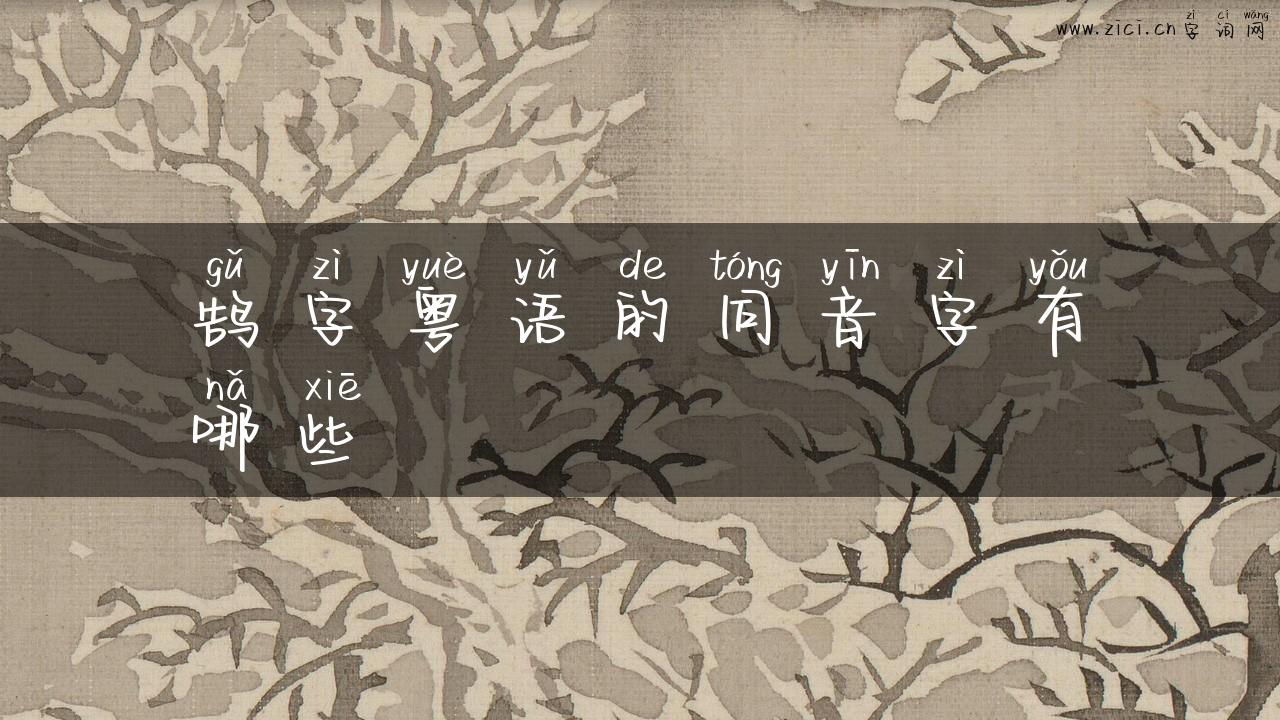 zì cí wǎng
www.zici.cn字词网
gǔ zì yuè yǔ de tóng yīn zì yǒu
鹄字粤语的同音字有
nǎ xiē
哪些